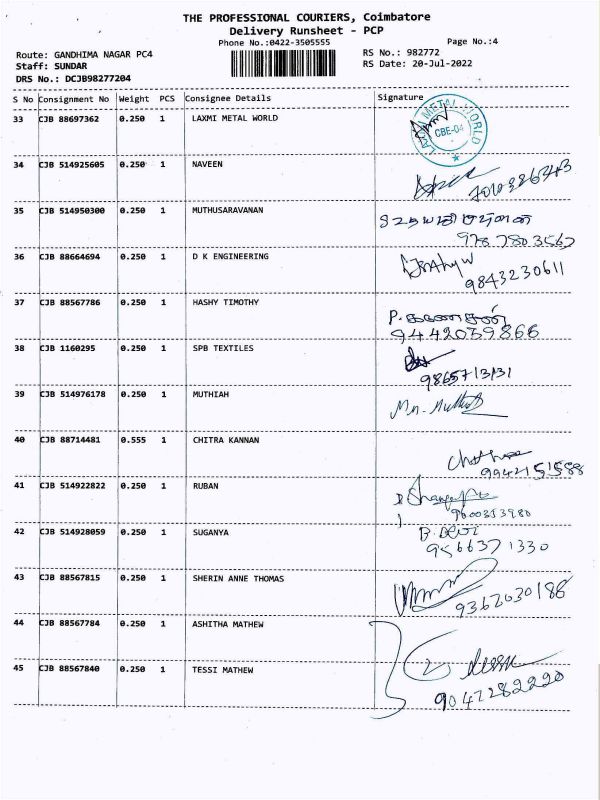 THE PROFESSIONAL COURIERS, Coimbatore
Delivery Runsheet - PCP
Phone No.:0422-3505555
Page No.:4
Route: GANDHIMA NAGAR PC4
RS No.: 982772
Staff: SUNDAR
RS Date: 20-Jul-2022
DRS No.: DCJB98277204
S No Consignment No Weight PCS Consignee Details Signature
33 CJB 88697362 0.250 1 LAXMI METAL WORLD
LAXMI METAL WORLD
CBE-04
34 CJB 514925605 0.250 1 NAVEEN
35 CJB 514950300 0.250 1 MUTHUSARAVANAN
978 7803567
36 CJB 88664694 0.250 1 D K ENGINEERING
9843230611
37 CJB 88567786 0.250 1 HASHY TIMOTHY
P. கணேசன்
9442039866
38 CJB 1160295 0.250 1 SPB TEXTILES
9865713131
39 CJB 514976178 0.250 1 MUTHIAH
40 CJB 88714481 0.555 1 CHITRA KANNAN
9942151588
41 CJB 514922822 0.250 1 RUBAN
9600353980
42 CJB 514928059 0.250 1 SUGANYA
9566371330
43 CJB 88567815 0.250 1 SHERIN ANNE THOMAS
9362030188
44 CJB 88567784 0.250 1 ASHITHA MATHEW
45 CJB 88567840 0.250 1 TESSI MATHEW
9047282220